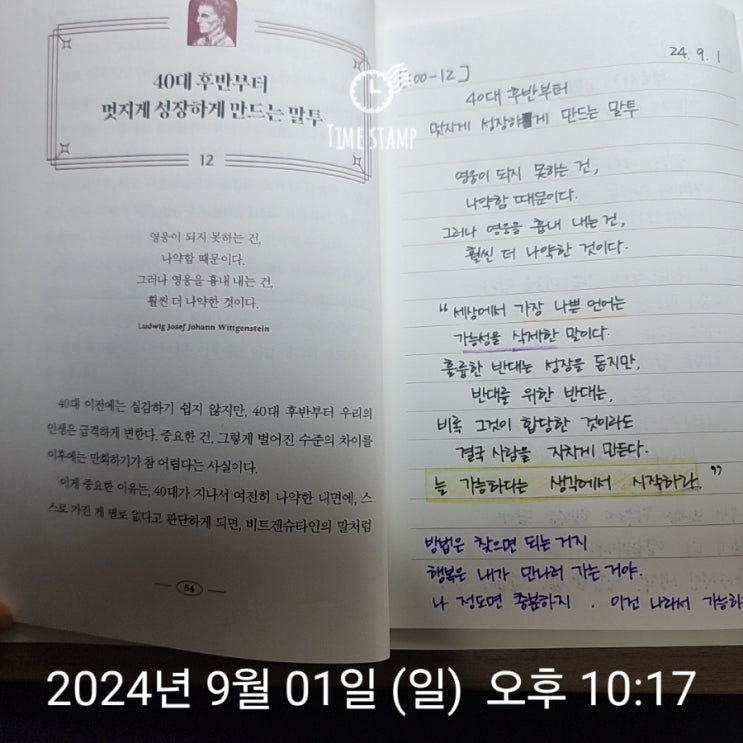 40대 후반부터
멋지게 성장하게 만드는 말투
12
영웅이 되지 못하는 건,
나약함 때문이다.
그러나 영웅을 흉내 내는 건,
훨씬 더 나약한 것이다.
Ludwig Josef Johann Wittgenstein
40대 이전에는 실감하기 쉽지 않지만, 40대 후반부터 우리의
인생은 급격하게 변한다. 중요한 건, 그렇게 벌어진 수준의 차이를
이후에는 만회하기가 참 어렵다는 사실이다.
이게 중요한 이유는, 40대가 지나서 여전히 나약한 내면에, 스
스로 가진 게 별로 없다고 판단하게 되면, 비트겐슈타인의 말처럼
54
TIME STAMP
24. 9. 1
00-12]
40대 후반부터
멋지게 성장하게 만드는 말투
영웅이 되지 못하는 건,
나약함 때문이다.
그러나 영웅을 흉내 내는 건,
훨씬 더 나약한 것이다.
“세상에서 가장 나쁜 언어는
가능성을 삭제한 말이다.
훌륭한 반대는 성장을 돕지만,
반대를 위한 반대는,
비록 그것이 합당한 것이라도
결국 사람을 지치게 만든다.
늘 가능하다는 생각에서 시작하라.”
방법은 찾으면 되는거지
행복은 내가 만나러 가는거야.
나 정도면 충분하지. 이건 나라서 가능하
2024년 9월 01일 (일) 오후 10:17